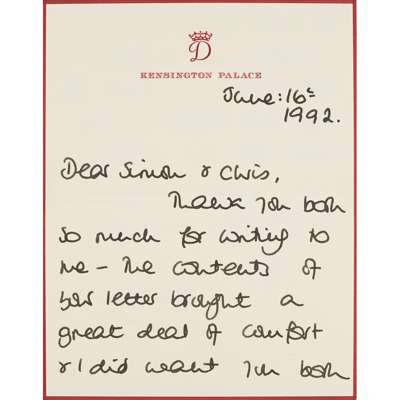 D
KENSINGTON PALACE
June: 16th
1992.
Dear Simon & Chris,
Thank you both
so much for writing to
me - The contents of
your letter brought a
great deal of comfort
& I did want you both